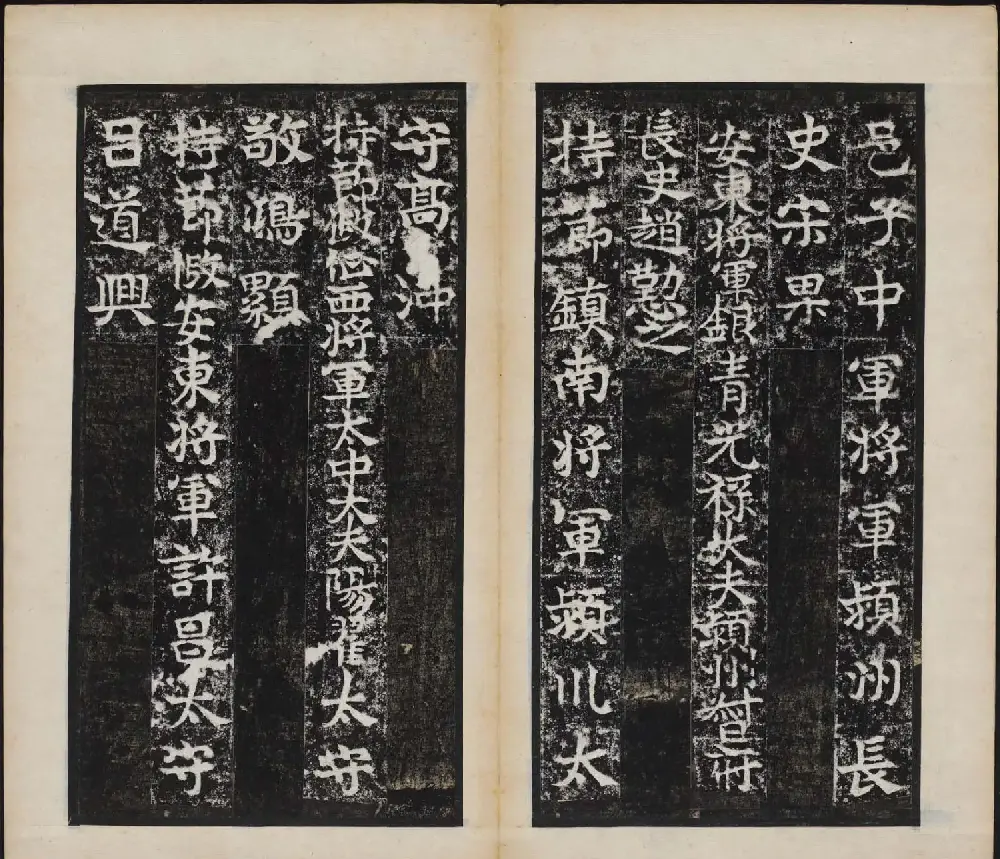 邑子中軍將軍潁州長
史宋果
安東將軍銀青光祿大夫潁州督府
長史趙勤之
持節鎮南將軍潁川太
守高沖
持節假征西將軍太中大夫陽翟太守
敬鴻顯
持節假安東將軍許昌太守
呂道興